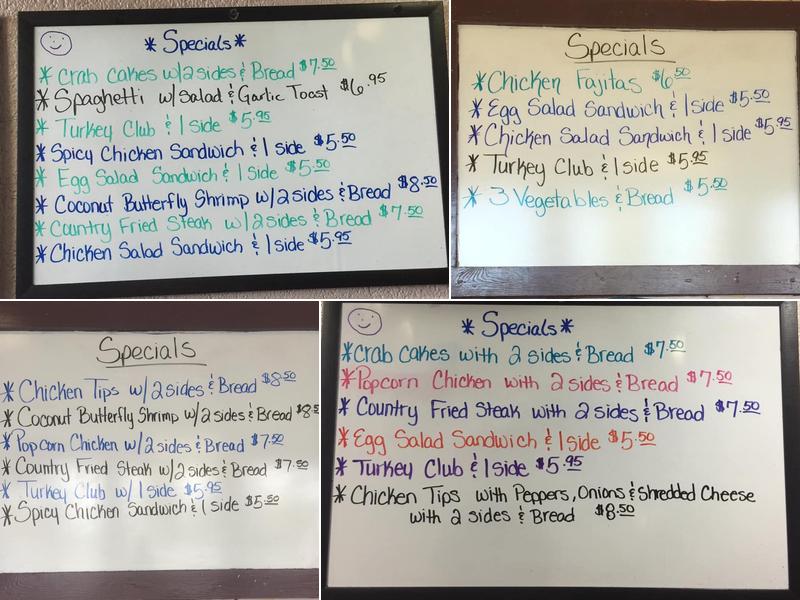 * Specials *
* Crab Cakes w/2 sides & Bread $7.50
* Spaghetti w/Salad & Garlic Toast $6.95
* Turkey Club & 1 side $5.95
* Spicy Chicken Sandwich & 1 side $5.50
* Egg Salad Sandwich & 1 side $5.50
* Coconut Butterfly Shrimp w/2 sides & Bread $8.50
* Country Fried Steak w/2 sides & Bread $7.50
* Chicken Salad Sandwich & 1 side $5.95
Specials
* Chicken Fajitas $6.50
* Egg Salad Sandwich & 1 side $5.50
* Chicken Salad Sandwich & 1 side $5.95
* Turkey Club & 1 side $5.95
* 3 Vegetables & Bread $5.50
Specials
* Chicken Tips w/2 sides & Bread $8.50
* Coconut Butterfly Shrimp w/2 sides & Bread $8.5
* Popcorn Chicken w/2 sides & Bread $7.50
* Country Fried Steak w/2 sides & Bread $7.50
* Turkey Club w/1 side $5.95
* Spicy Chicken Sandwich & 1 side $5.50
* Specials *
* Crab Cakes with 2 sides & Bread $7.50
* Popcorn Chicken with 2 sides & Bread $7.50
* Country Fried Steak with 2 sides & Bread $7.50
* Egg Salad Sandwich & 1 side $5.50
* Turkey Club & 1 side $5.95
* Chicken Tips with Peppers, Onions & Shredded Cheese
with 2 sides & Bread $8.50